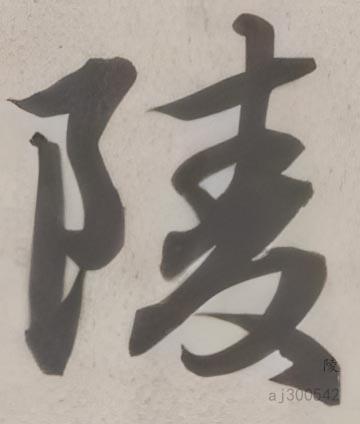 陵
陵
aj300642